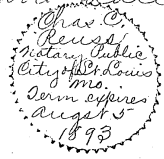 Chas C.
Reuss
Notary Public
City of St Louis
Mo.
Term expires
Augst 5
1893